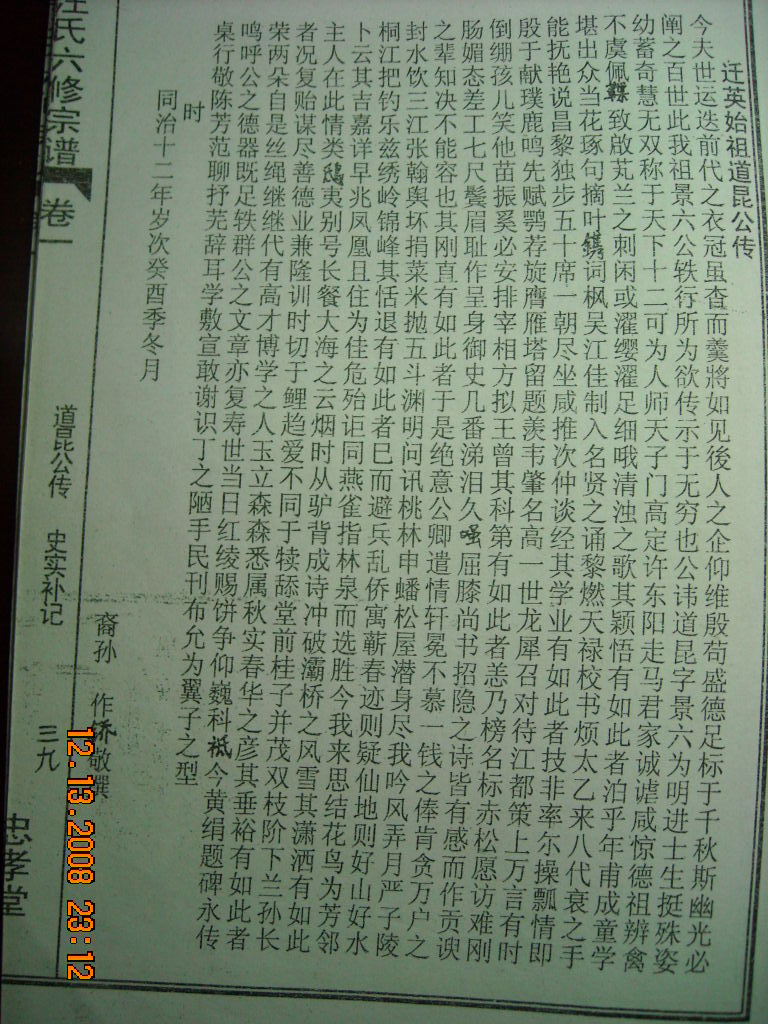 迁英始祖道昆公传
今夫世运迭前代之衣冠虽杳而羹将如见後人之企仰维殷苟盛德足标于千秋斯幽光必
阐之百世此我祖景六公轶行所为欲传示于无穷也公讳道昆字景六为明进士生挺殊姿
幼蓄奇慧无双称于天下十二可为人师天子门高定许东阳走马君家诚谑咸惊德祖辨禽
不虞佩韘致啟芄兰之刺闲或濯缨濯足细哦清浊之歌其颖悟有如此者洎乎年甫成童学
堪出众当花琢句摘叶镌词枫吴江佳制入名贤之诵黎燃天禄校书烦太乙来八代衰之手
能抚艳说昌黎独步五十席一朝尽坐咸推次仲谈经其学业有如此者技非率尔操瓢情即
殷于献璞鹿鸣先赋鹗荐旋膺雁塔留题羡韦肇名高一世龙犀召对待江都策上万言有时
倒绷孩儿笑他苗振奚必安排宰相方拟王曾其科第有如此者恙乃榜名标赤松愿访难刚
肠媚态差工七尺鬓眉耻作呈身御史几番涕泪久嗤屈膝尚书招隐之诗皆有感而作贡谀
之辈知决不能容也其刚直有如此者于是绝意公卿遣情轩冕不慕一钱之俸肯贪万户之
封水饮三江张翰舆坏捐菜米抛五斗渊明问讯桃林申蟠松屋潜身尽我吟风弄月严子陵
桐江把钓乐兹绣岭锦峰其恬退有如此者巳而避兵乱侨寓蕲春迹则疑仙地则好山好水
卜云其吉嘉详早兆凤凰且住为佳危殆讵同燕雀指林泉而选胜今我来思结花鸟为芳邻
主人在此情类鸱夷别号长餐大海之云烟时从驴背成诗冲破灞桥之风雪其潇洒有如此
者况复贻谋尽善德业兼隆训时切于鲤趋爱不同于犊舔堂前桂子并茂双枝阶下兰孙长
荣两朵自是丝绳继继代有高才博学之人玉立森森悉属秋实春华之彦其垂裕有如此者
鸣呼公之德器既足轶群公之文章亦复寿世当日红绫赐饼争仰巍科祗今黄绢题碑永传
臬行敬陈芳范聊抒芜辞耳学敷宣敢谢识丁之陋手民刊布允为翼子之型
时
同治十二年岁次癸酉季冬月
裔孙 作侨敬撰
汪氏六修宗谱 卷一
道昆公传 史实补记
三九
忠孝堂
12.13.2008 23:12